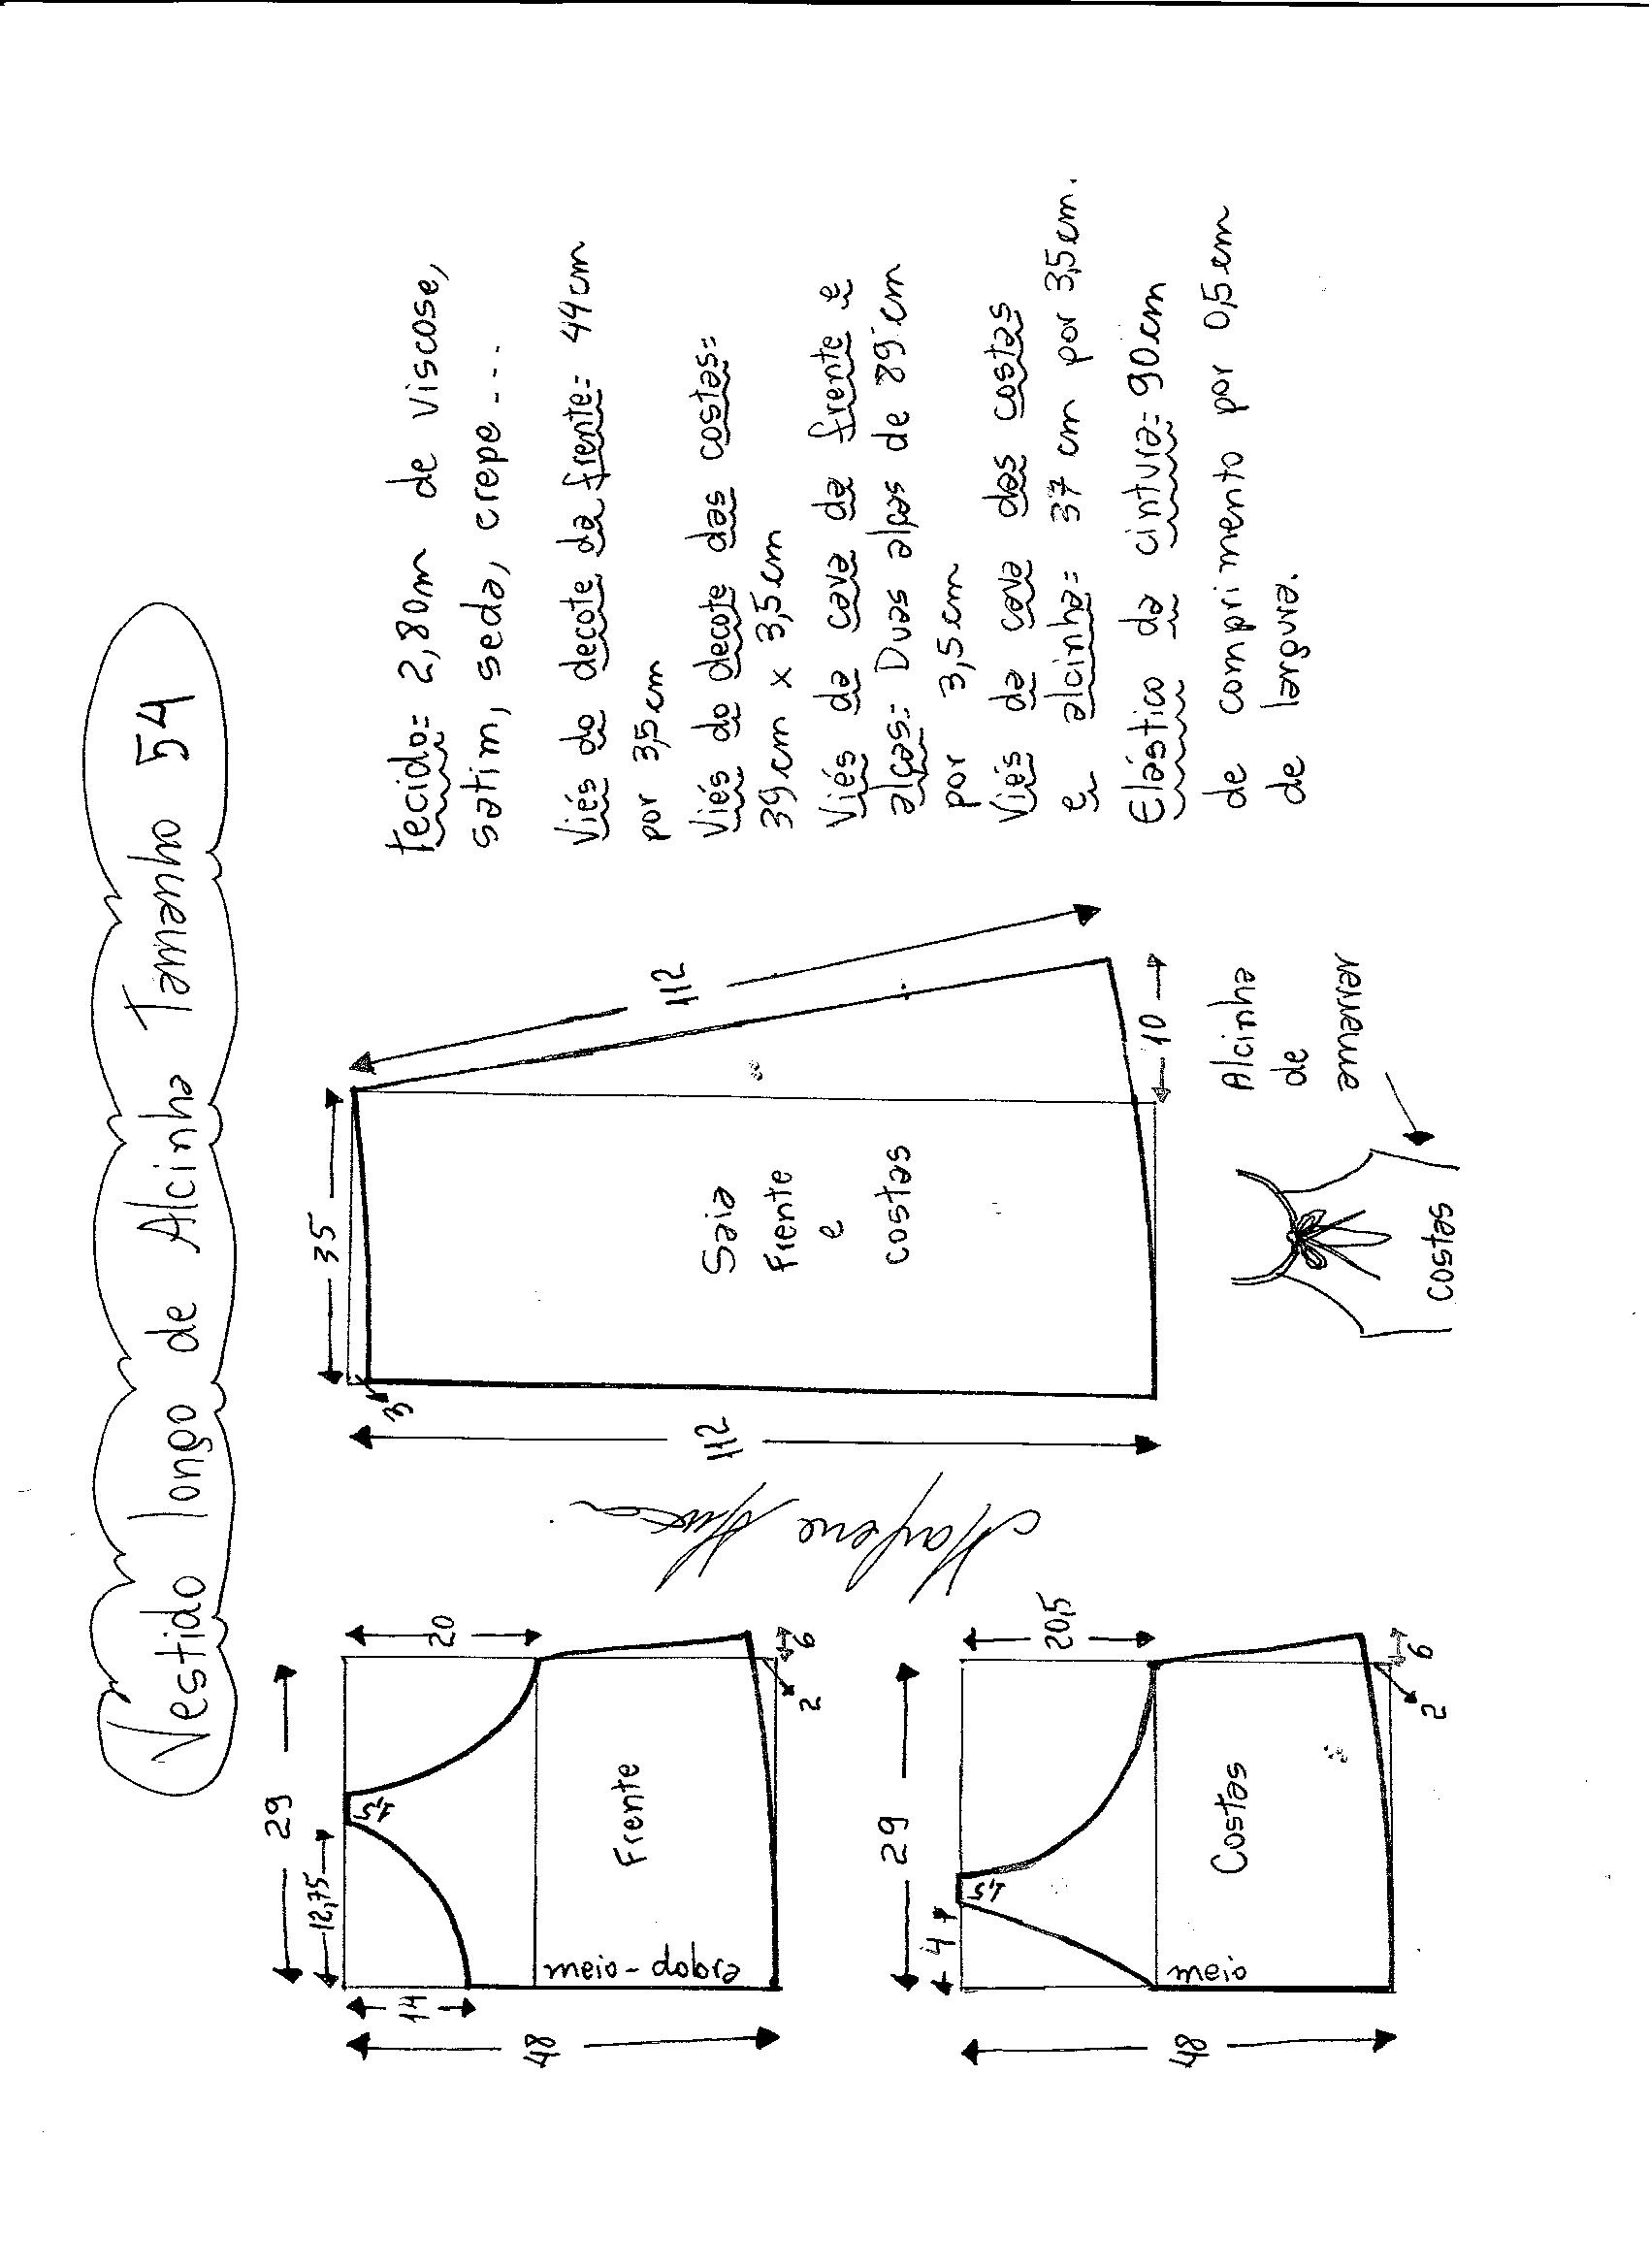 Vestido longo de Alcinha Tamanho 54
29
12,75
14
48
20
1,5
Frente
meio-dobra
6
2
29
4
48
20,5
1,5
Costas
meio
6
2
Marlene
35
3
112
112
10
Saia
Frente
e
costas
Alcinha
de
amarrar
costas
tecido= 2,80m de viscose,
satim, seda, crepe....
Viés do decote da frente= 44cm
por 3,5cm
Viés do decote das costas=
39cm x 3,5cm
Viés da cava da frente e
alças= Duas alças de 89cm
por 3,5cm
Viés da cava das costas
e alcinha= 37 cm por 3,5cm.
Elástico da cintura= 90cm
de comprimento por 0,5cm
de largura.